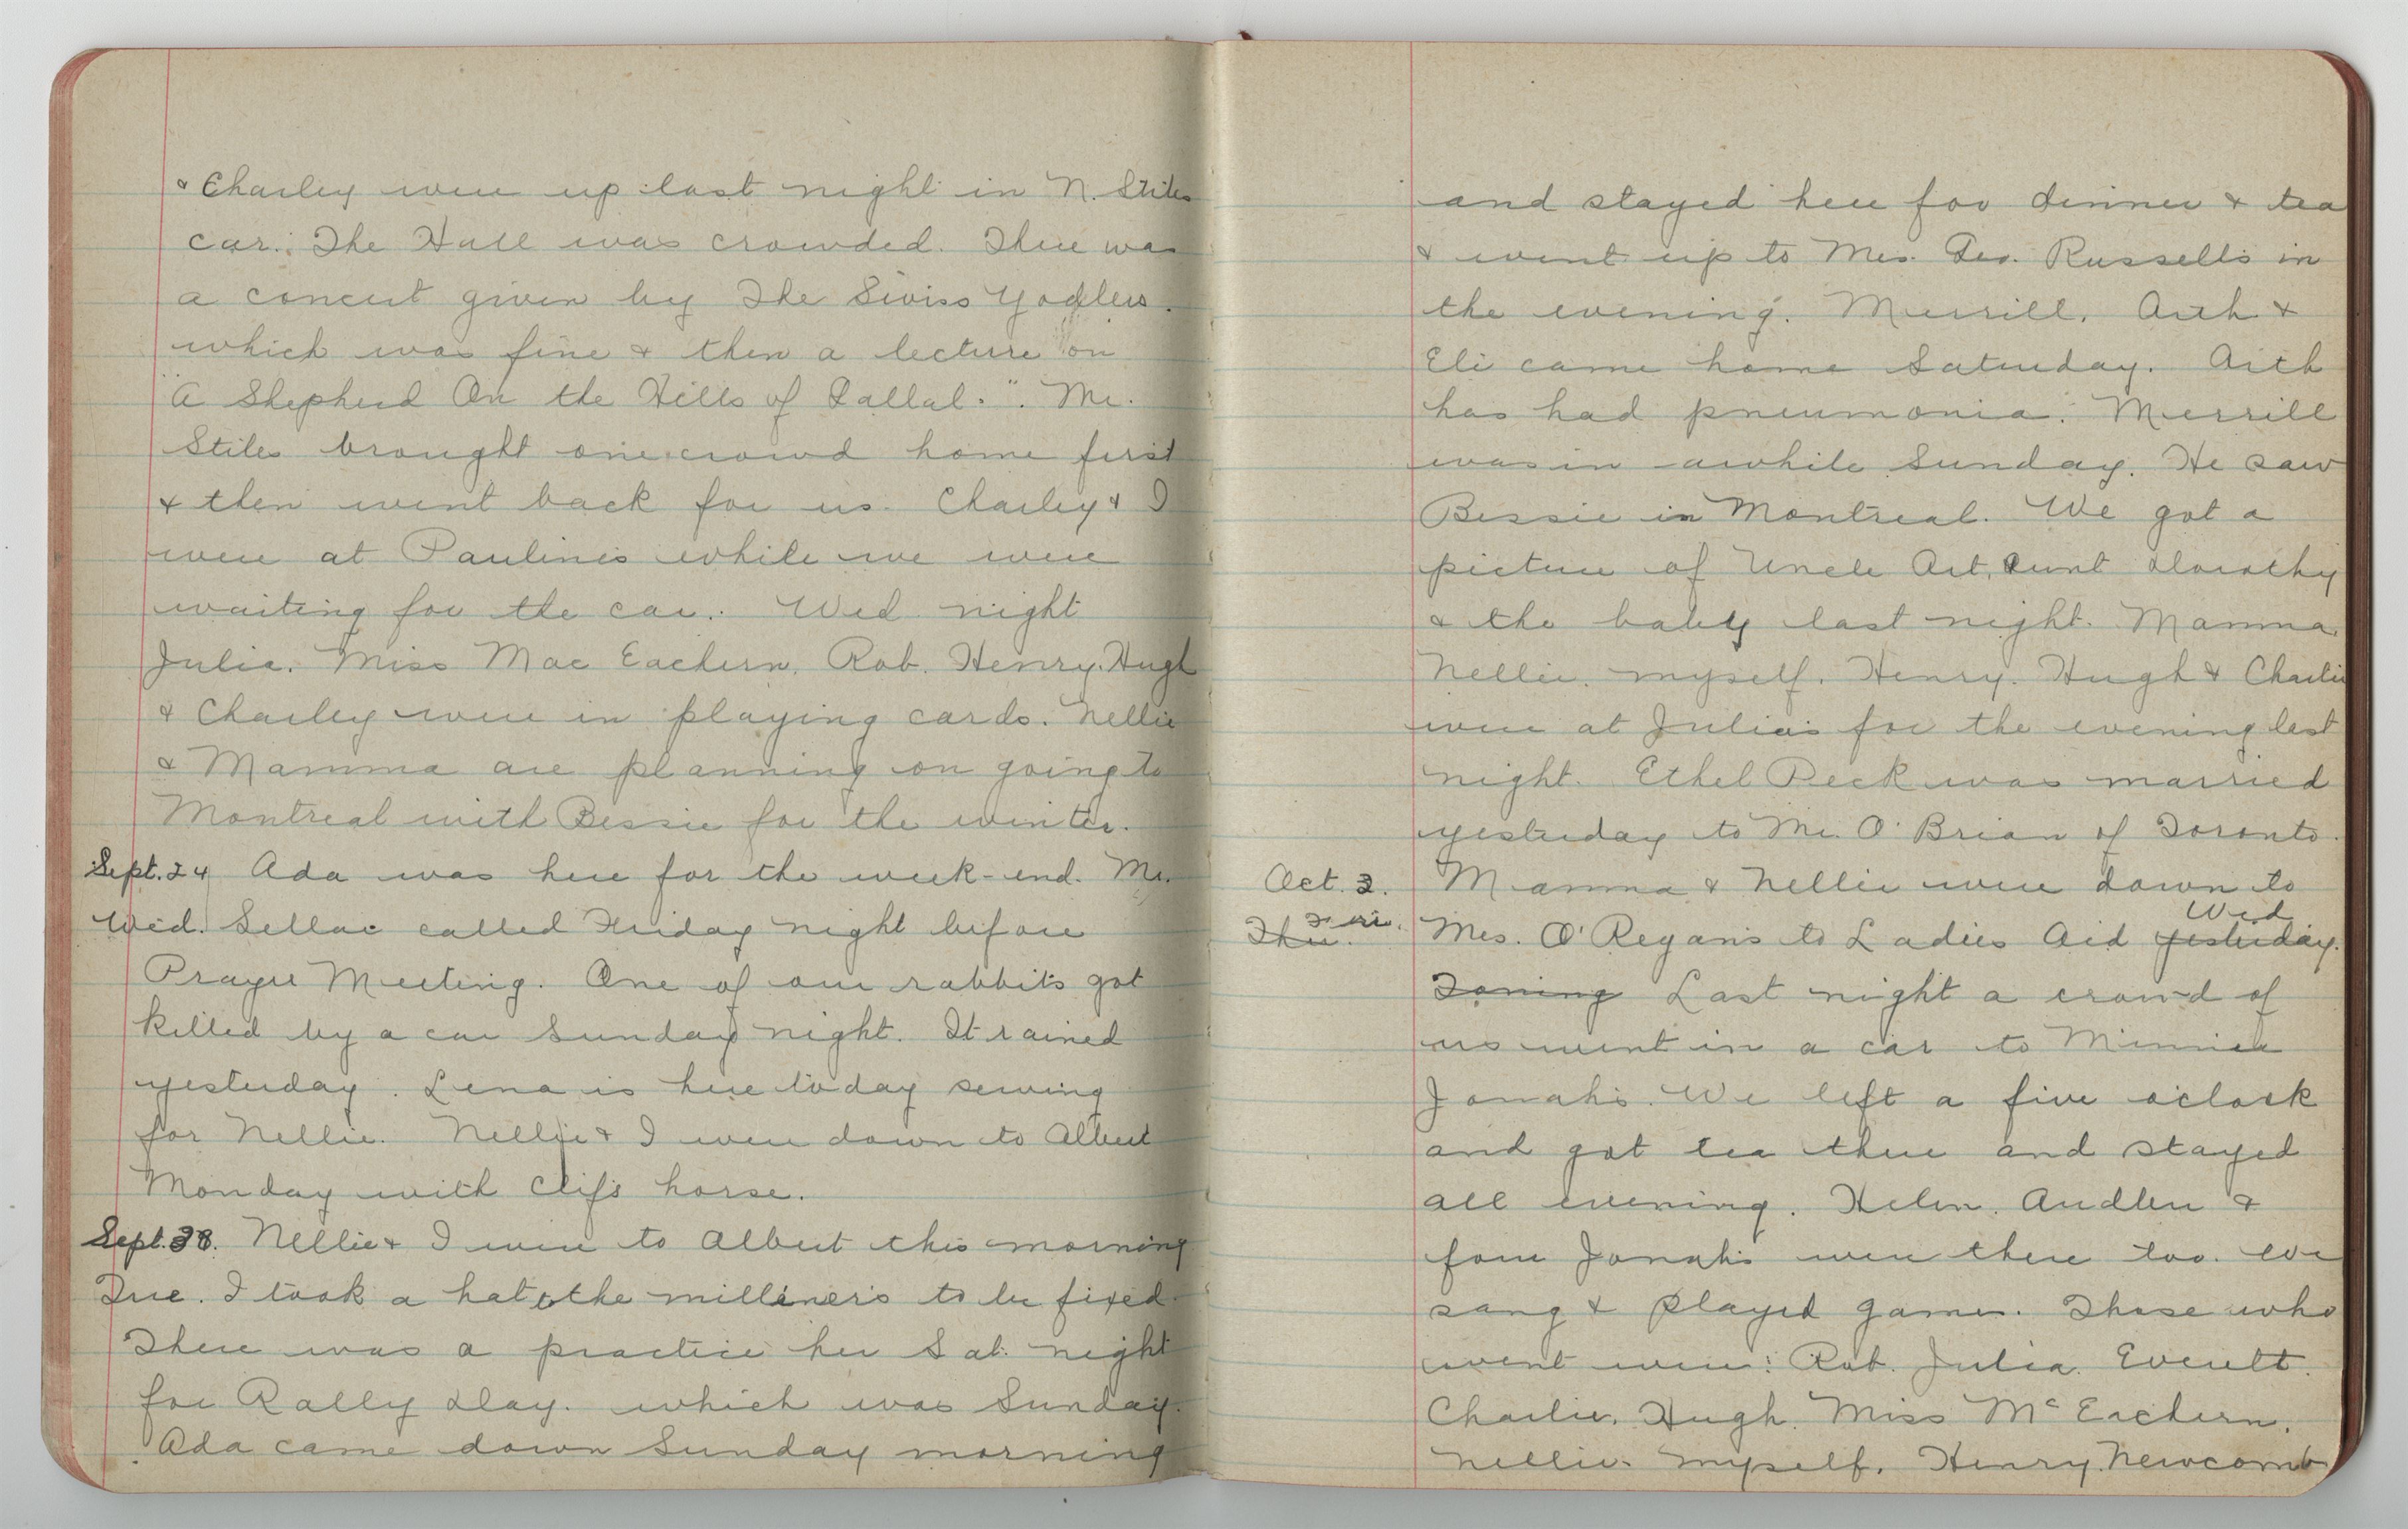 & Charley were up last night in N. Stiles
car. The Hall was crowded. There was
a concert given by The Swiss Yodlers.
which was fine & then a lecture on
"A Shepherd On the Hills of Dallal.". Mr.
Stiles brought one crowd home first
& then went back for us. Charley & I
were at Pauline's while we were
waiting for the car. Wed night
Julia. Miss Mac Eachern, Rob. Henry. Hugh
& Charley were in playing cards. Nellie
& Mamma are planning on going to
Montreal with Bessie for the winter.
Sept. 24 Ada was here for the week-end. Mr.
Wed. Sellar called Friday night before
Prayer Meeting. One of our rabbits got
killed by a car Sunday night. It rained
yesterday. Lena is here today sewing
for Nellie. Nellie & I were down to Albert
Monday with Clif's horse.
Sept. 38. Nellie & I were to Albert this morning
Tue. I took a hat to the milliner's to be fixed.
There was a practice her Sat. night
for Rally Day. which was Sunday.
Ada came down Sunday morning
and stayed here for dinner & tea
& went up to Mrs. Geo. Russell's in
the evening. Merrill. Arth &
Eli came home Saturday. Arth
has had pneumonia. Merrill
was in awhile Sunday. He saw
Bessie in Montreal. We got a
picture of Uncle Art, Aunt Dorothy
& the baby last night. Mamma.
Nellie. myself. Henry. Hugh & Charlie
were at Julia's for the evening last
night. Ethel Peck was married
yesterday to Mr. O'Brian of Toronto.
Oct. 3. Mamma & Nellie were down to
Thu. Fri. Mrs. O'Regan's to Ladies Aid yesterday. Wed
Toning Last night a crowd of
us went in a car to Minnie
Jonah's. We left a five o'clock
and got tea there and stayed
all evening. Helen. Audlen &
four Jonah's were there too. We
sang & played games. Those who
went were: Rob. Julia. Everett.
Charlie. Hugh. Miss McEachern.
Nellie. myself. Henry. Newcomb